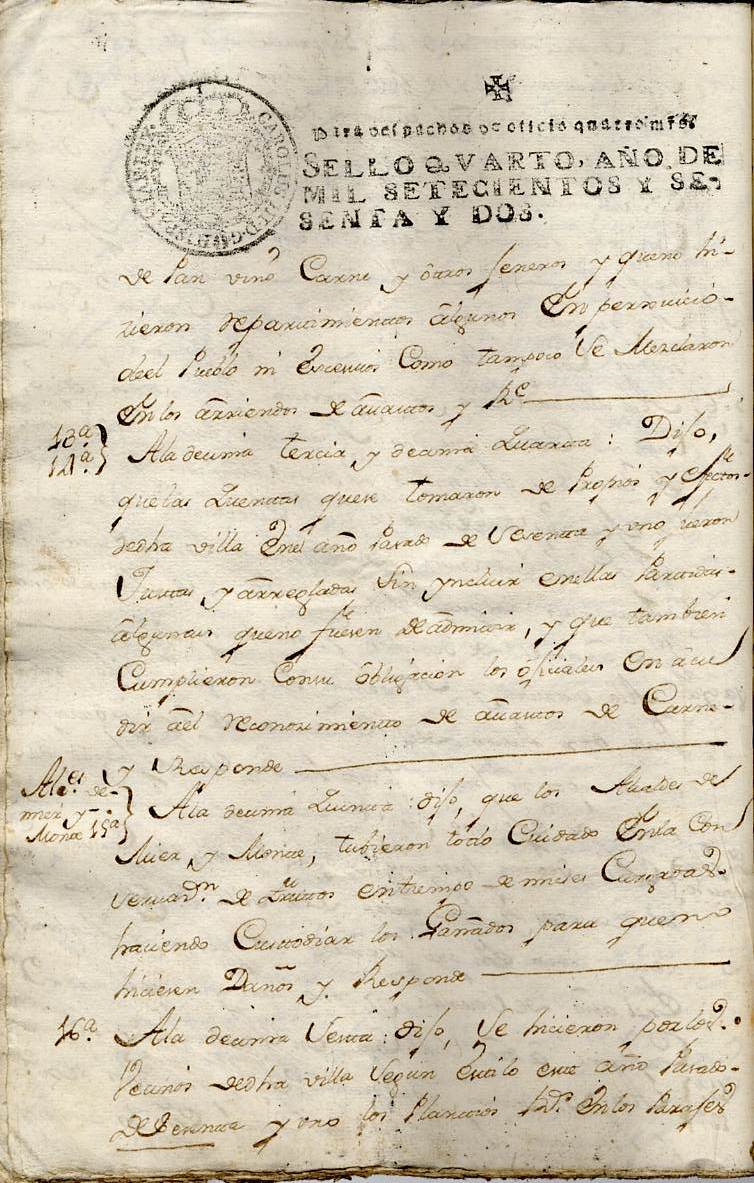 CAROLUS III D. G. HISP
Para despachos de oficio quatro mrs.
SELLO QVARTO, AÑO DE
MIL SETECIENTOS Y SE-
SENTA Y DOS.
de Pan vino Carne y otros Generos y queno hi-
cieron Repartimientos algunos En perxuicio-
deel Pueblo ni Excesos Como tampoco Se Mezclaron
En los arriendos de avastos, y Re
13ª
14ª
Ala decima tercia y decima Quarta: Dijo,
quelas Quentas quese tomaron de Propios y efectos
dedha villa Enel año Pasado de Sesenta y uno fueron
Justas y arregladas Sin yncluir enellas Partidas-
algunas queno fuesen de admitir, y que tambien
Cumplieron Consu obligacion los ofiziales En acu
dir ael reconocimiento de avastos de Carne-
y Responde
Ales de-
mier y-
Monte 15ª
Ala decima Quinta: dijo, que los Alcaldes de
Mier, y Monte, tubieron todo Cuidado Enla Con
servazn. de frutos entiempo de mieses Cargadas-
haciendo Custodiar los Ganados para queno
hiciesen Daños y Responde
16ª
Ala decima Sesta: dijo, Se hicieron por los
Vecinos dedha villa Segun Estilo este año Pasado-
de Sesenta y uno los Plantios Rs. En los Parajes